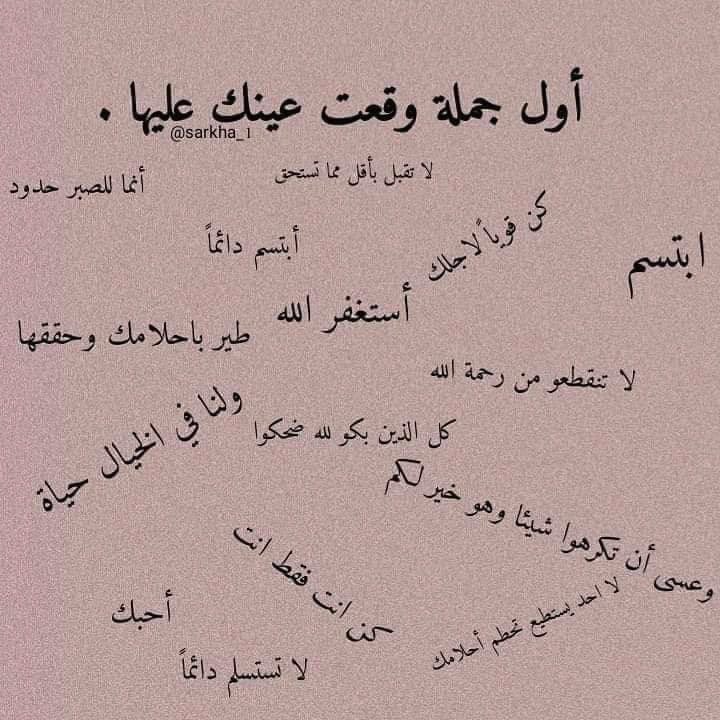 أول جملة وقعت عينك عليها .
@sarkha_1
لا تقبل بأقل مما تستحق
أنما للصبر حدود
كن قوياً لاجلك
أبتسم دائماً
ابتسم
أستغفر الله
طير باحلامك وحققها
لا تنقطعو من رحمة الله
ولنا في الخيال حياة
كل الذين بكو لله ضحكوا
وعسى أن تكرهوا شيئا وهو خير لكم
كن انت فقط انت
لا احد يستطيع تحطم أحلامك
أحبك
لا تستسلم دائماً